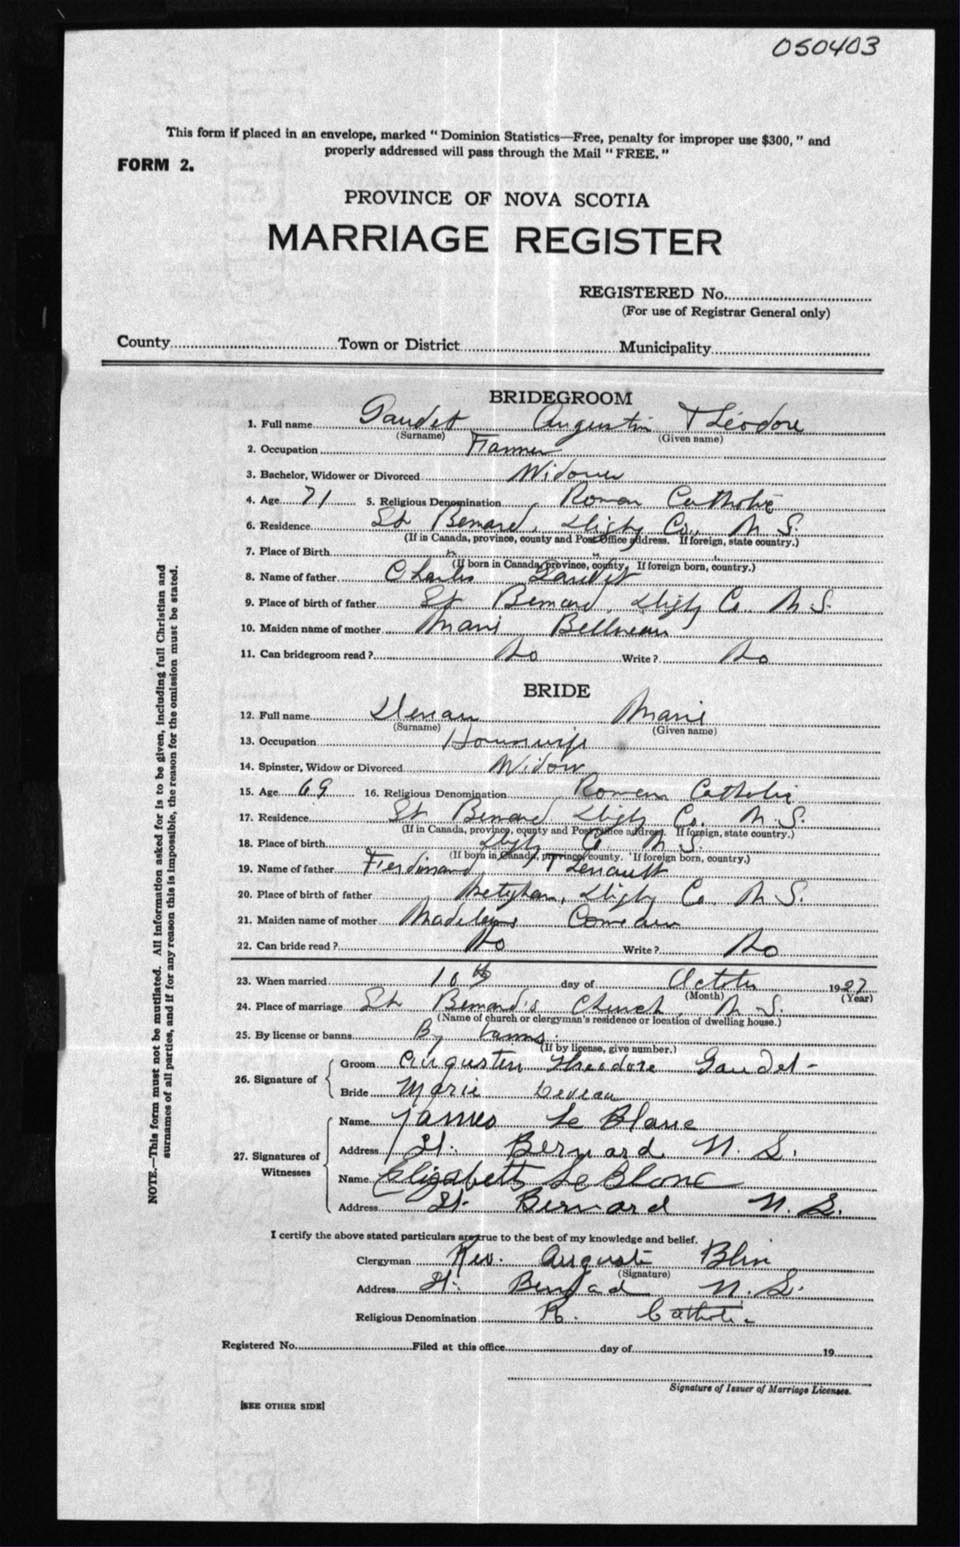 050403
This form if placed in an envelope, marked "Dominion Statistics—Free, penalty for improper use $300," and
properly addressed will pass through the Mail "FREE."
FORM 2.
PROVINCE OF NOVA SCOTIA
MARRIAGE REGISTER
REGISTERED No.
(For use of Registrar General only)
County Town or District Municipality
BRIDEGROOM
1. Full name Gaudet Augustin Théodore
(Surname) (Given name)
2. Occupation Farmer
3. Bachelor, Widower or Divorced Widower
4. Age 71 5. Religious Denomination Roman Catholic
6. Residence St Bernard, Digby Co., N. S.
(If in Canada, province, county and Post Office address. If foreign, state country.)
7. Place of Birth " " "
(If born in Canada, province, county, If foreign born, country.)
8. Name of father Charles Gaudet
9. Place of birth of father St Bernard, Digby Co. N. S.
10. Maiden name of mother Marie Belliveau
11. Can bridegroom read? No Write? No
BRIDE
12. Full name Deveau Marie
(Surname) (Given name)
13. Occupation Housewife
14. Spinster, Widow or Divorced Widow
15. Age 69 16. Religious Denomination Roman Catholic
17. Residence St Bernard Digby Co. N. S.
(If in Canada, province, county and Post Office address. If foreign, state country.)
18. Place of birth Digby Co N. S.
(If born in Canada, province/county. If foreign born, country.)
19. Name of father Ferdinand Thenault
20. Place of birth of father Meteghan, Digby Co, N. S.
21. Maiden name of mother Madeleine Comeau
22. Can bride read? No Write? No
23. When married 10th day of October 1927
(Month) (Year)
24. Place of marriage St Bernard's Church, N. S.
(Name of church or clergyman's residence or location of dwelling house.)
25. By license or banns By banns
(If by license, give number.)
26. Signature of
Groom Augusten Theodore Gaudet
Bride Marie Deveau
27. Signatures of Witnesses
Name James Le Blanc
Address St. Bernard N. S.
Name Elizabeth Le Blanc
Address St. Bernard N. S.
I certify the above stated particulars are true to the best of my knowledge and belief.
Clergyman Rev. Auguste Blin
(Signature)
Address St. Bernard N. S.
Religious Denomination R. Catholic
Registered No. Filed at this office day of 19
Signature of Issuer of Marriage Licenses.
[SEE OTHER SIDE]
NOTE.—This form must not be mutilated. All information asked for is to be given, including full Christian and
surnames of all parties, and if for any reason this is impossible, the reason for the omission must be stated.